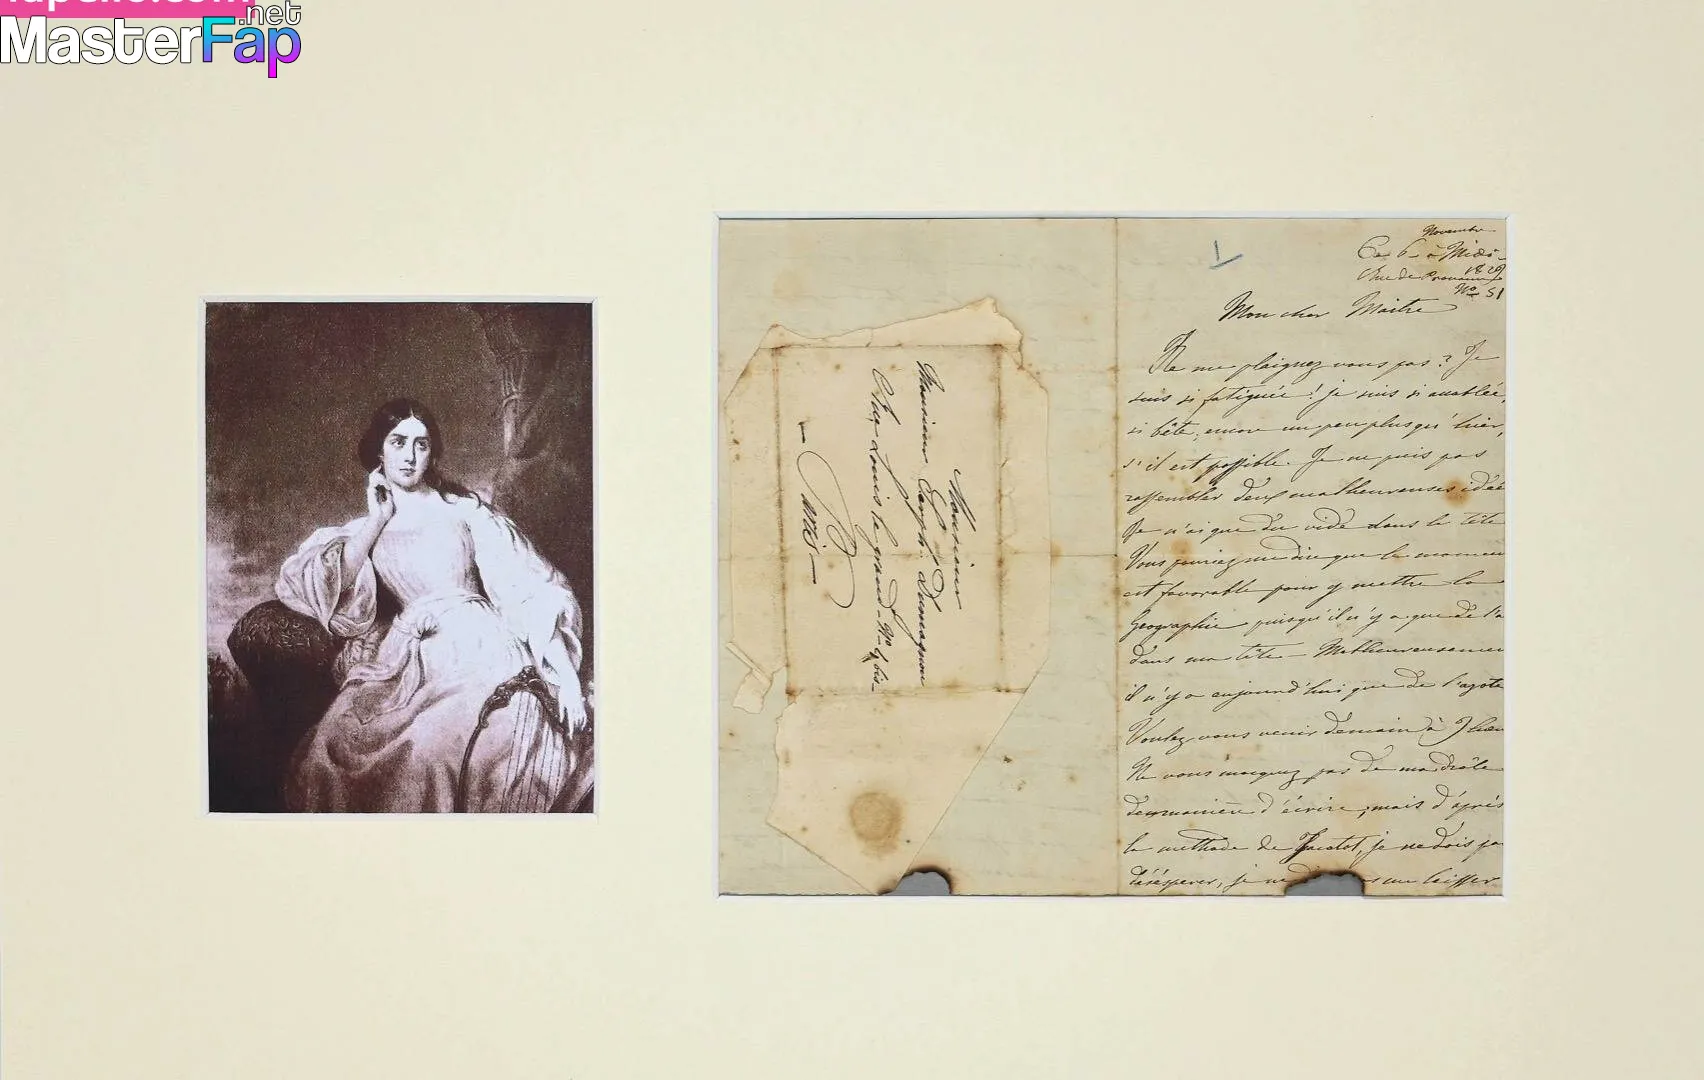 MasterFap
.net
Monsieur
Monsieur Joseph
Rue Louis le grand - No 4 bis -
- Paris -
Novembre
Ce 6 - à Midi -
1829
Rue de Provence
No 51
Mon cher Maitre
Ne me plaignez vous pas ? Je
suis si fatiguée ! je suis si
si bête, encore un peu plus qu'hier,
s'il est possible. Je ne puis pas
rassembler deux malheureuses idées
Je n'ai que du vide dans la tête
Vous pouriez me dire que le momen
est favorable pour y mettre la
Geographie puisqu'il n'y a que de l'a
dans ma tête - Malheureusemen
il n'y a aujourd'hui que de l'azote
Voulez vous venir demain à
Ne vous moquez pas de ma drôle
de manière d'écrire, mais d'après
la methode de Jacotot, je ne dois pa
désésperer, je me laisser